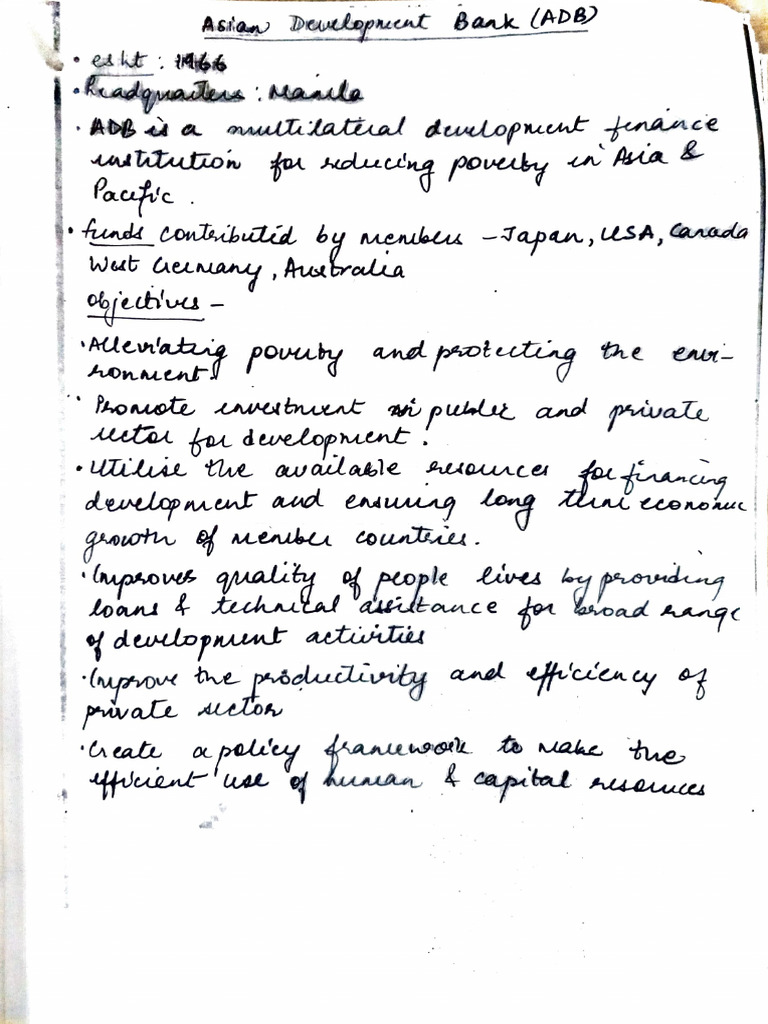 Asian Development Bank (ADB)
• estt : 1966
• Headquaters : Manila
• ADB is a multilateral development finance
institution for reducing poverty in Asia &
Pacific.
• funds contributed by members – Japan, USA, Canada
West Germany, Australia
objectives –
• Alleviating poverty and protecting the envi-
ronment.
• Promote investment in public and private
sector for development.
• Utilise the available resources for financing
development and ensuring long term economic
growth of member countries.
• Improves quality of people lives by providing
loans & technical assistance for broad range
of development activities
• Improve the productivity and efficiency of
private sector
• Create a policy framework to make the
efficient use of human & capital resources